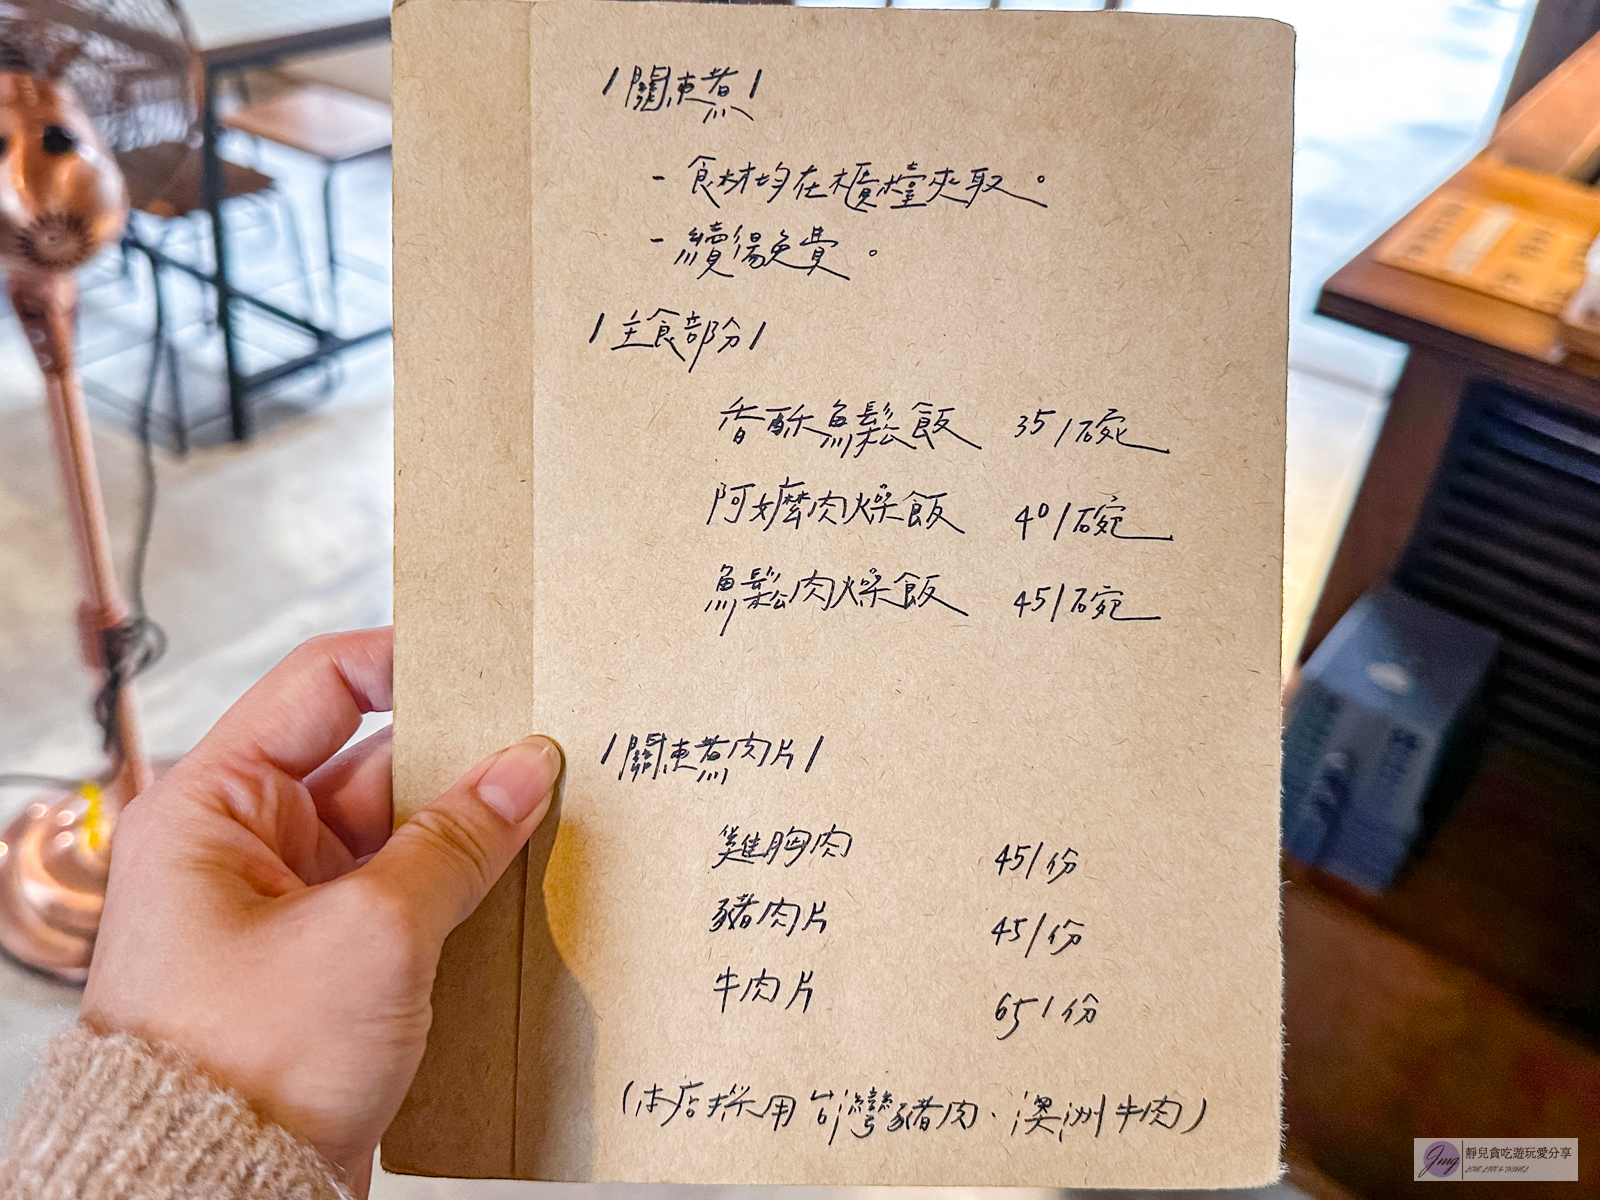 /關東煮/
- 食材均在櫃檯夾取。
- 續湯免費。
/主食部份/
香酥魚鬆飯 35/碗
阿嬤肉燥飯 40/碗
魚鬆肉燥飯 45/碗
/關東煮肉片/
雞胸肉 45/份
豬肉片 45/份
牛肉片 65/份
(本店採用台灣豬肉、澳洲牛肉)
Jing 靜兒貪吃遊玩愛分享